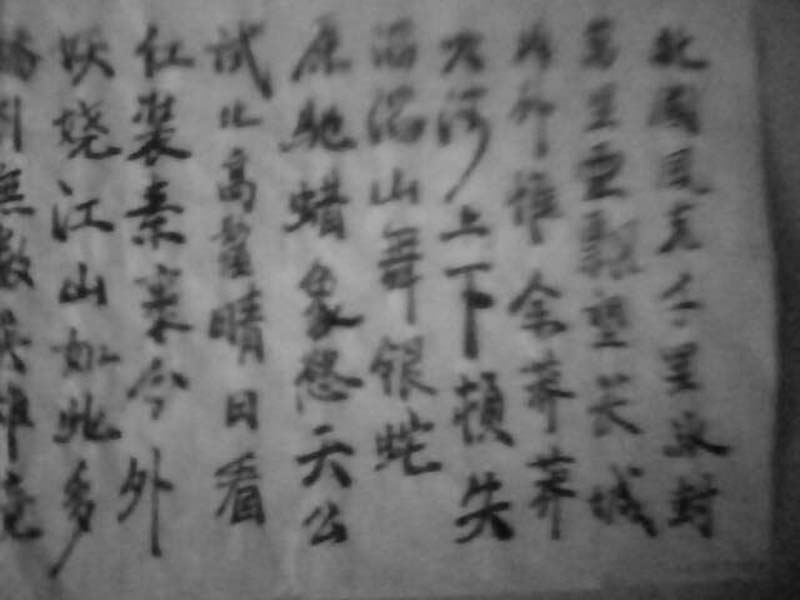 北國風光千里冰封
萬里雪飄望长城
内外惟余莽莽
大河上下頓失
滔滔山舞银蛇
原馳蜡象天公
試比高晴日看
红装素裹今外
妖娆江山如此多
嬌引無數英雄竞